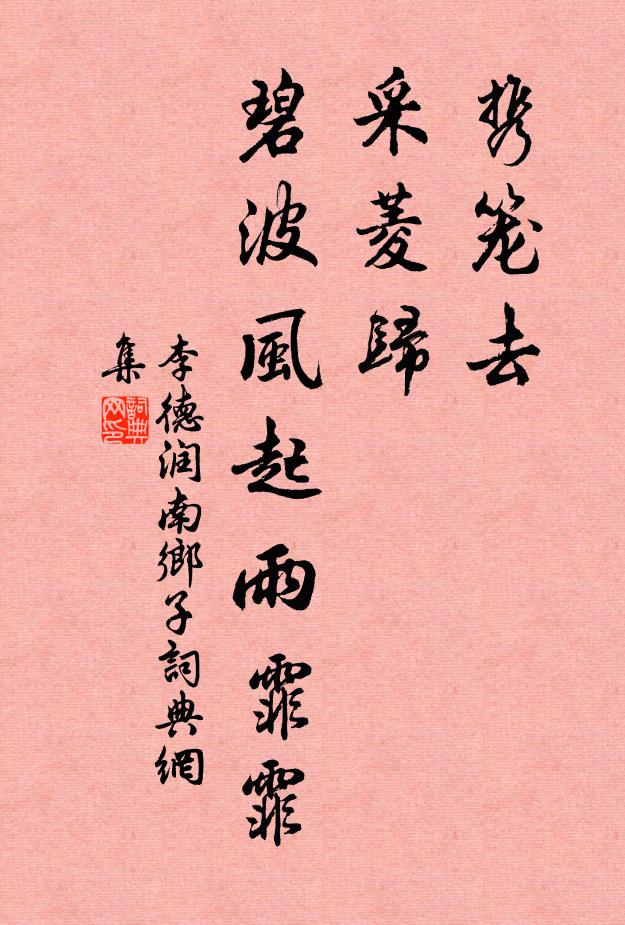 携笼去
采菱歸
碧波風起雨霏霏
李德润南鄉子詞典網
集
詞典
网印